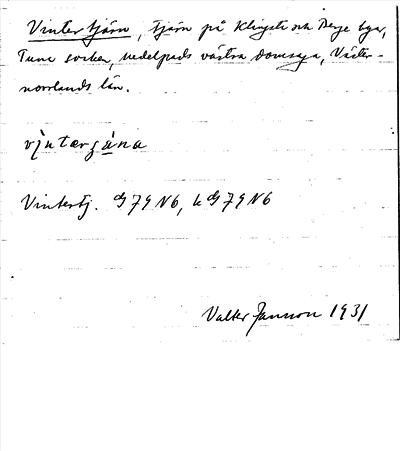 Vintertjärn, tjärn på Klingsta och Berge byar,
Tuna socken, Medelpads västra domsaga, Väster-
norrlands län.
vintærʒäna
Vintertj. G 79 N6, k G 79 N6
Valter Jansson 1931